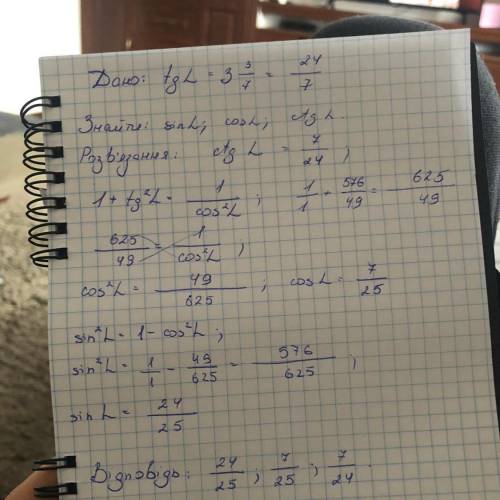 Дано: tg L = 3 3/7 = 24/7
Знайти: sin L; cos L; ctg L.
Розв'язання: ctg L = 7/24;
1 + tg²L = 1/cos²L; 1/1 + 576/49 = 625/49
625/49 = 1/cos²L;
cos²L = 49/625; cos L = 7/25
sin²L = 1 - cos²L;
sin²L = 1/1 - 49/625 = 576/625;
sin L = 24/25
Відповідь: 24/25; 7/25; 7/24.